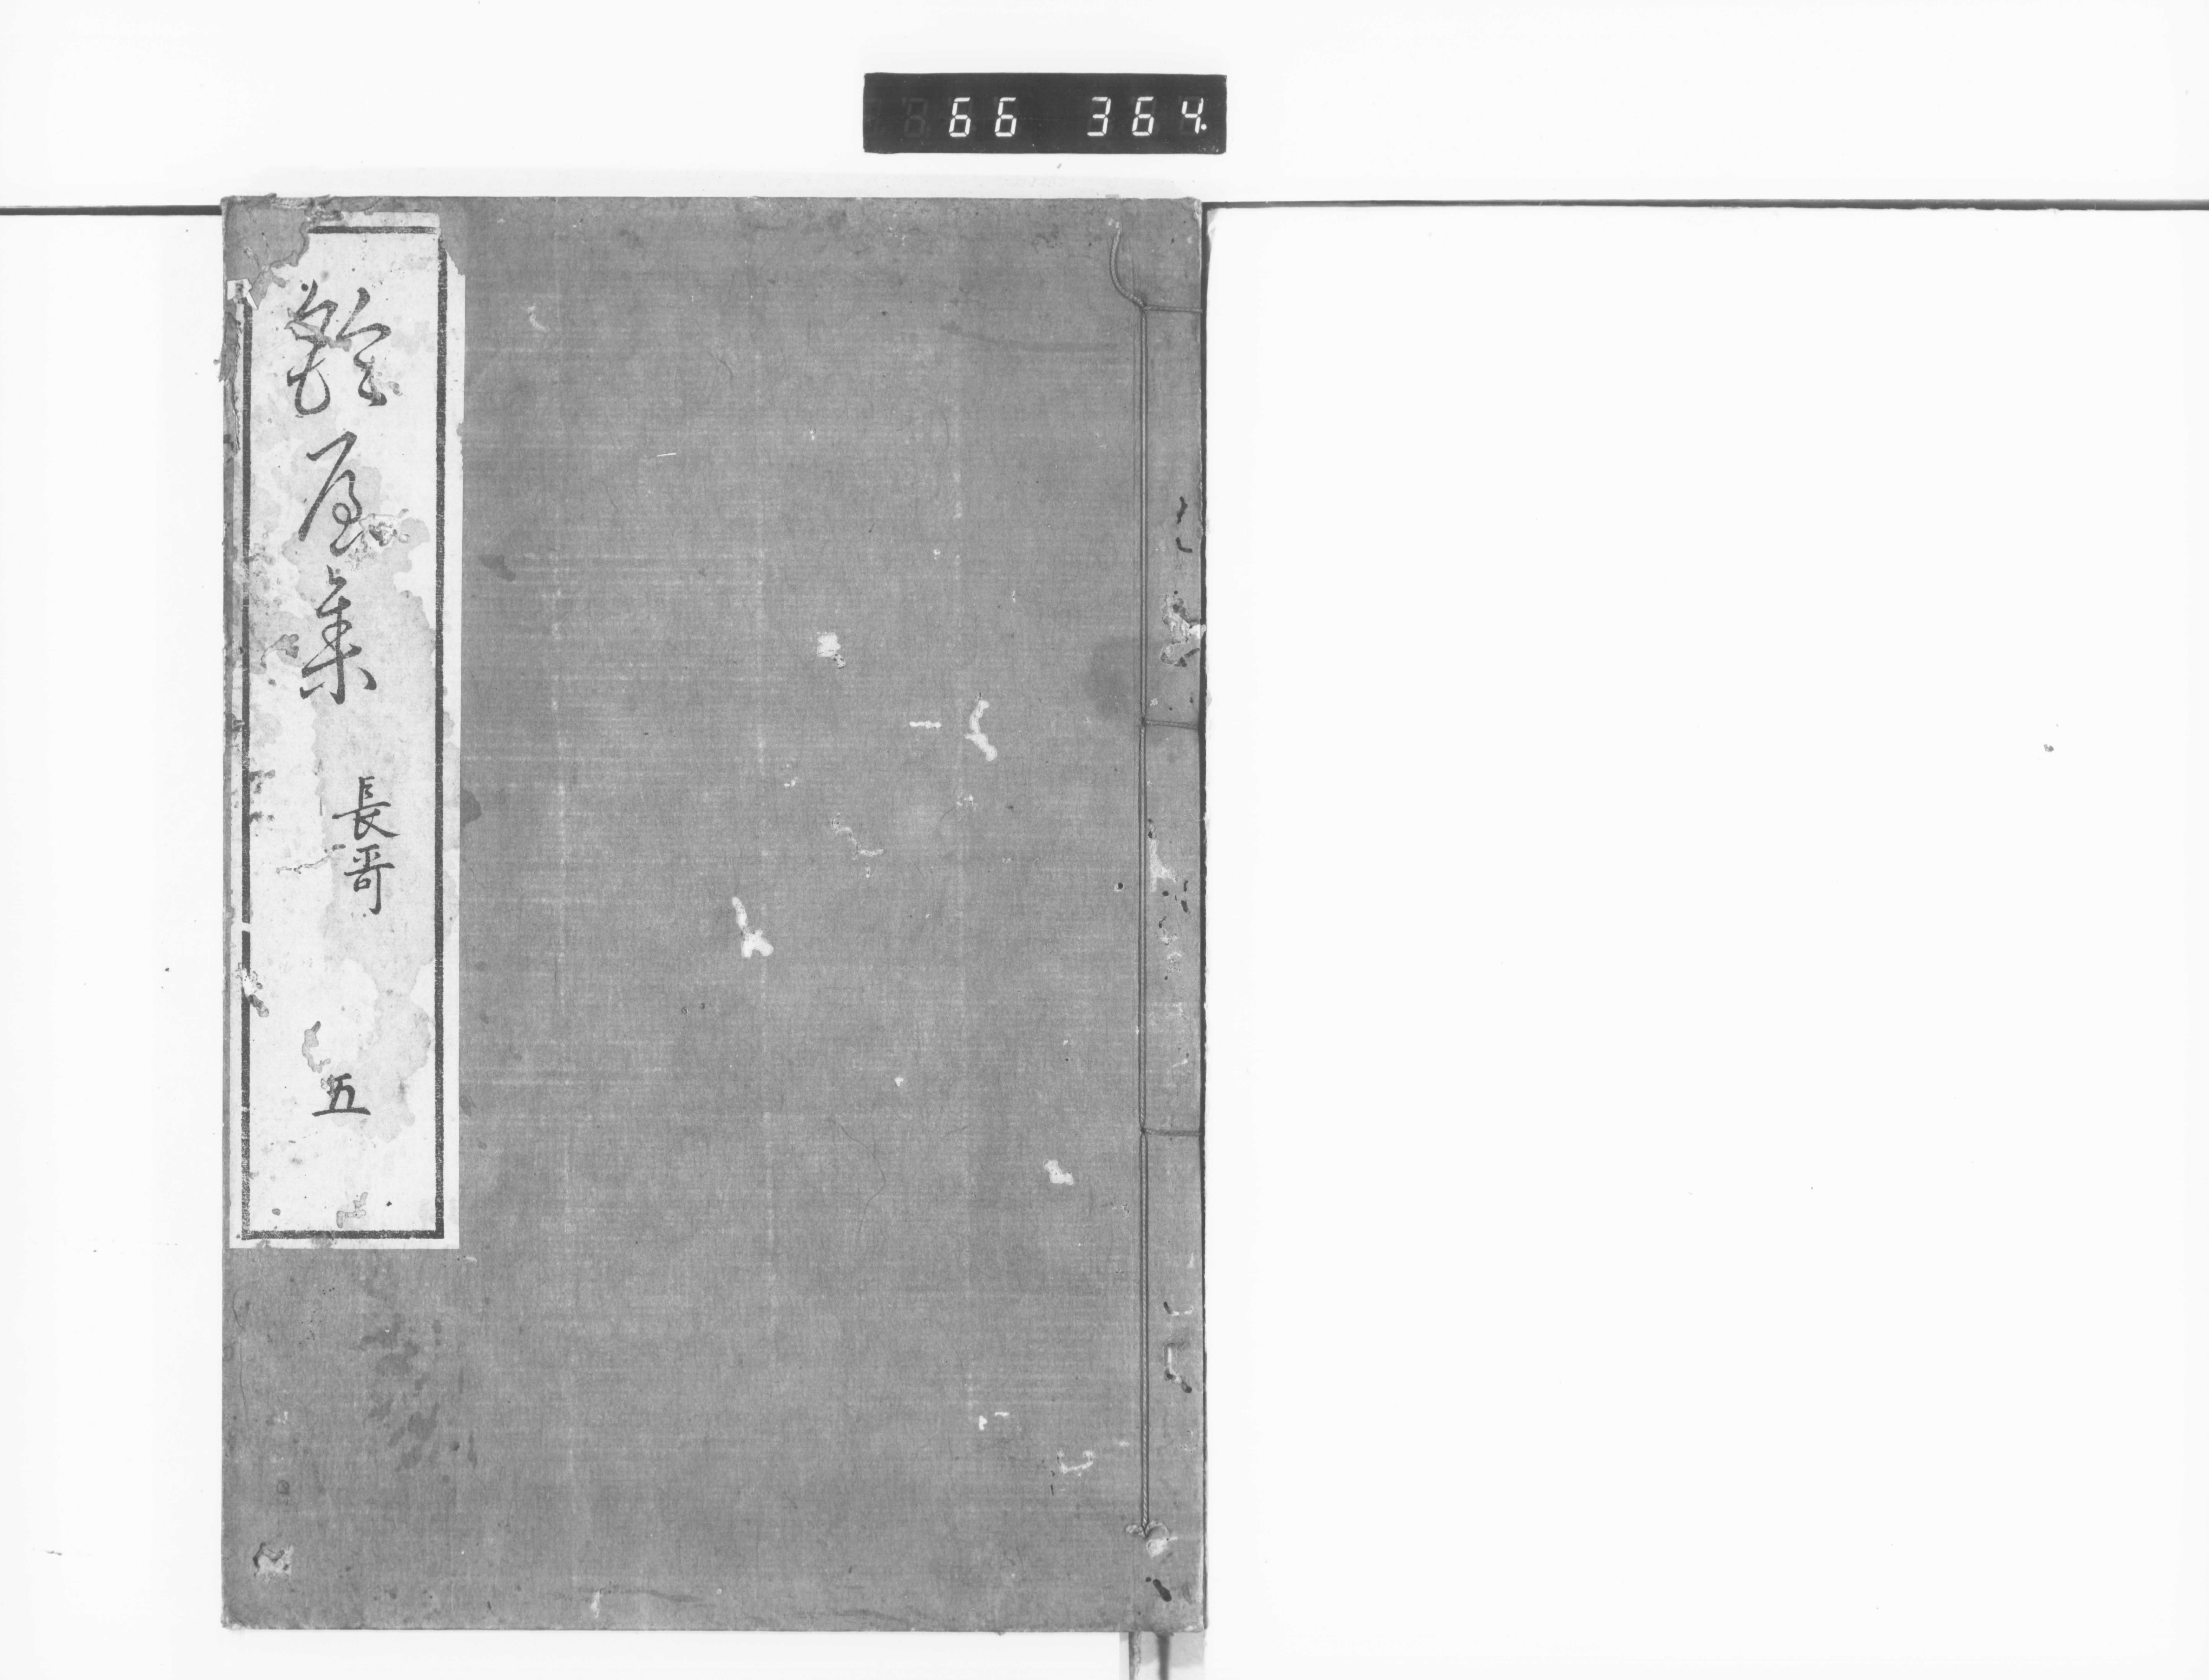 66 364.
鈴屋集
長哥
五